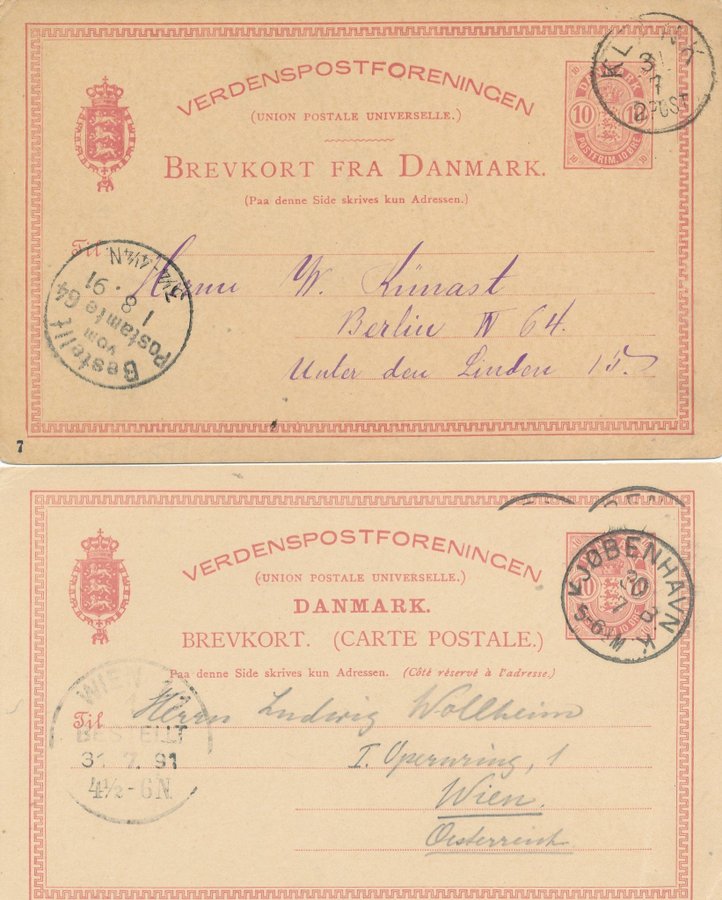 VERDENSPOSTFORENINGEN
(UNION POSTALE UNIVERSELLE.)
BREVKORT FRA DANMARK.
(Paa denne Side skrives kun Adressen.)
DANMARK
10 10
POSTFRIM. 10 ØRE
31
7
2 POST
Til
Herrn W. Künast
Berlin W 64.
Unter den Linden 15.
Bestellt
vom
Postamte 64
1 8 . 91
3¼-4¼N.
7
VERDENSPOSTFORENINGEN
(UNION POSTALE UNIVERSELLE.)
DANMARK.
BREVKORT. (CARTE POSTALE.)
Paa denne Side skrives kun Adressen. (Côté réservé à l'adresse.)
10
10 ØRE
KJØBENHAVN K.
30
7
5-6
Til
Herrn Ludwig Wollheim
I. Opernring, 1
Wien.
Oesterreich
WIEN
BESTELLT
31 7. 91
4½-6N